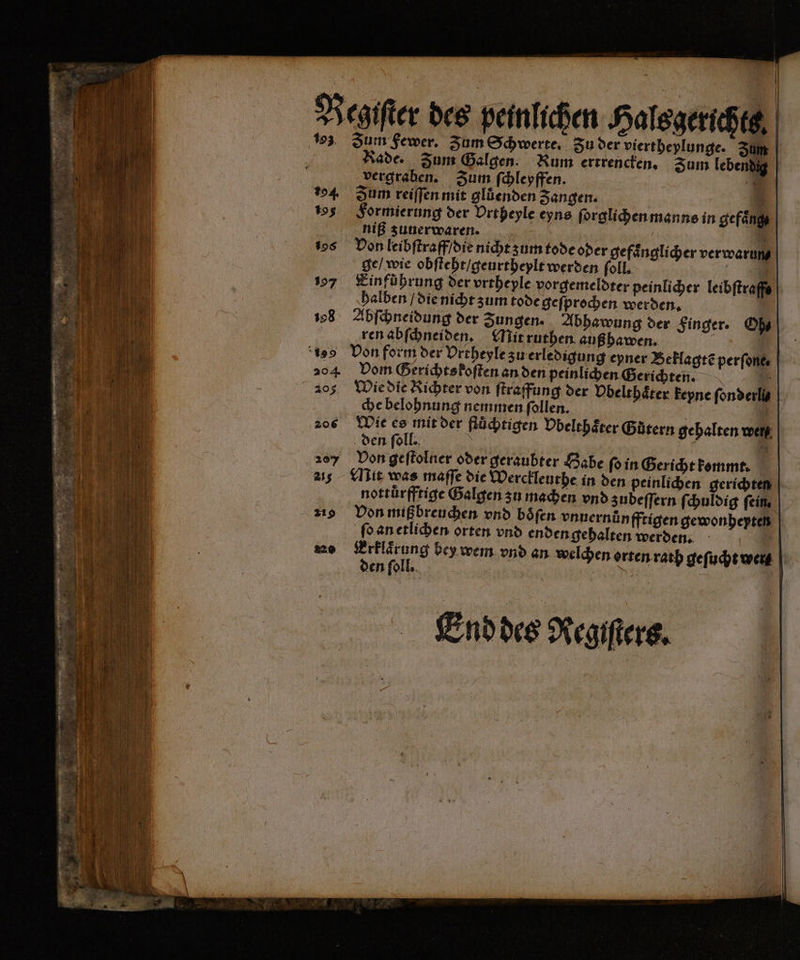 Regiſter des peinlichen Halsgerichts.
193 Zum Fewer. Zum Schwerte. Zu der viertheylunge. Zum
Rade. Zum Galgen. Rum ertrencken. Zum lebendig
vergraben. Zum ſchleyffen.
194 Zum reiſſen mit glůenden Zangen.
195 Formierung der Vrtheyle eyns ſorglichen manns in gefång⸗
niß zuuerwaren.
196 Von leibſtraff/die nicht zum tode oder gefånglicher verwarun⸗
ge/ wie obſteht/geurtheylt werden ſoll.
197 Einfůhrung der vrtheyle vorgemeldter peinlicher leibſtraff⸗
halben / die nicht zum tode geſprochen werden.
198 Abſchneidung der Zungen. Abhawung der Finger. Oh⸗
ren abſchneiden. Mit ruthen außhawen.
199 Von form der Vrtheyle zu erledigung eyner Beklagtẽ perſone.
204 Vom Gerichtskoſten an den peinlichen Gerichten.
205 Wie die Richter von ſtraffung der Vbelthåter keyne ſonderli⸗
che belohnung nemmen ſollen.
206 Wie es mit der flůchtigen Vbelthåter Gůtern gehalten wer⸗
den ſoll.
207 Von geſtolner oder geraubter Habe ſo in Gericht kommt.
215 Mit was maſſe die Werckleuthe in den peinlichen gerichten
nottůrfftige Galgen zu machen vnd zubeſſern ſchuldig ſein.
219 Von mißbreuchen vnd bőſen vnuernůnfftigen gewonheyten
ſo an etlichen orten vnd enden gehalten werden.
220 Erklårung bey wem vnd an welchen orten rath geſucht wer⸗
den ſoll.
End des Regiſters.